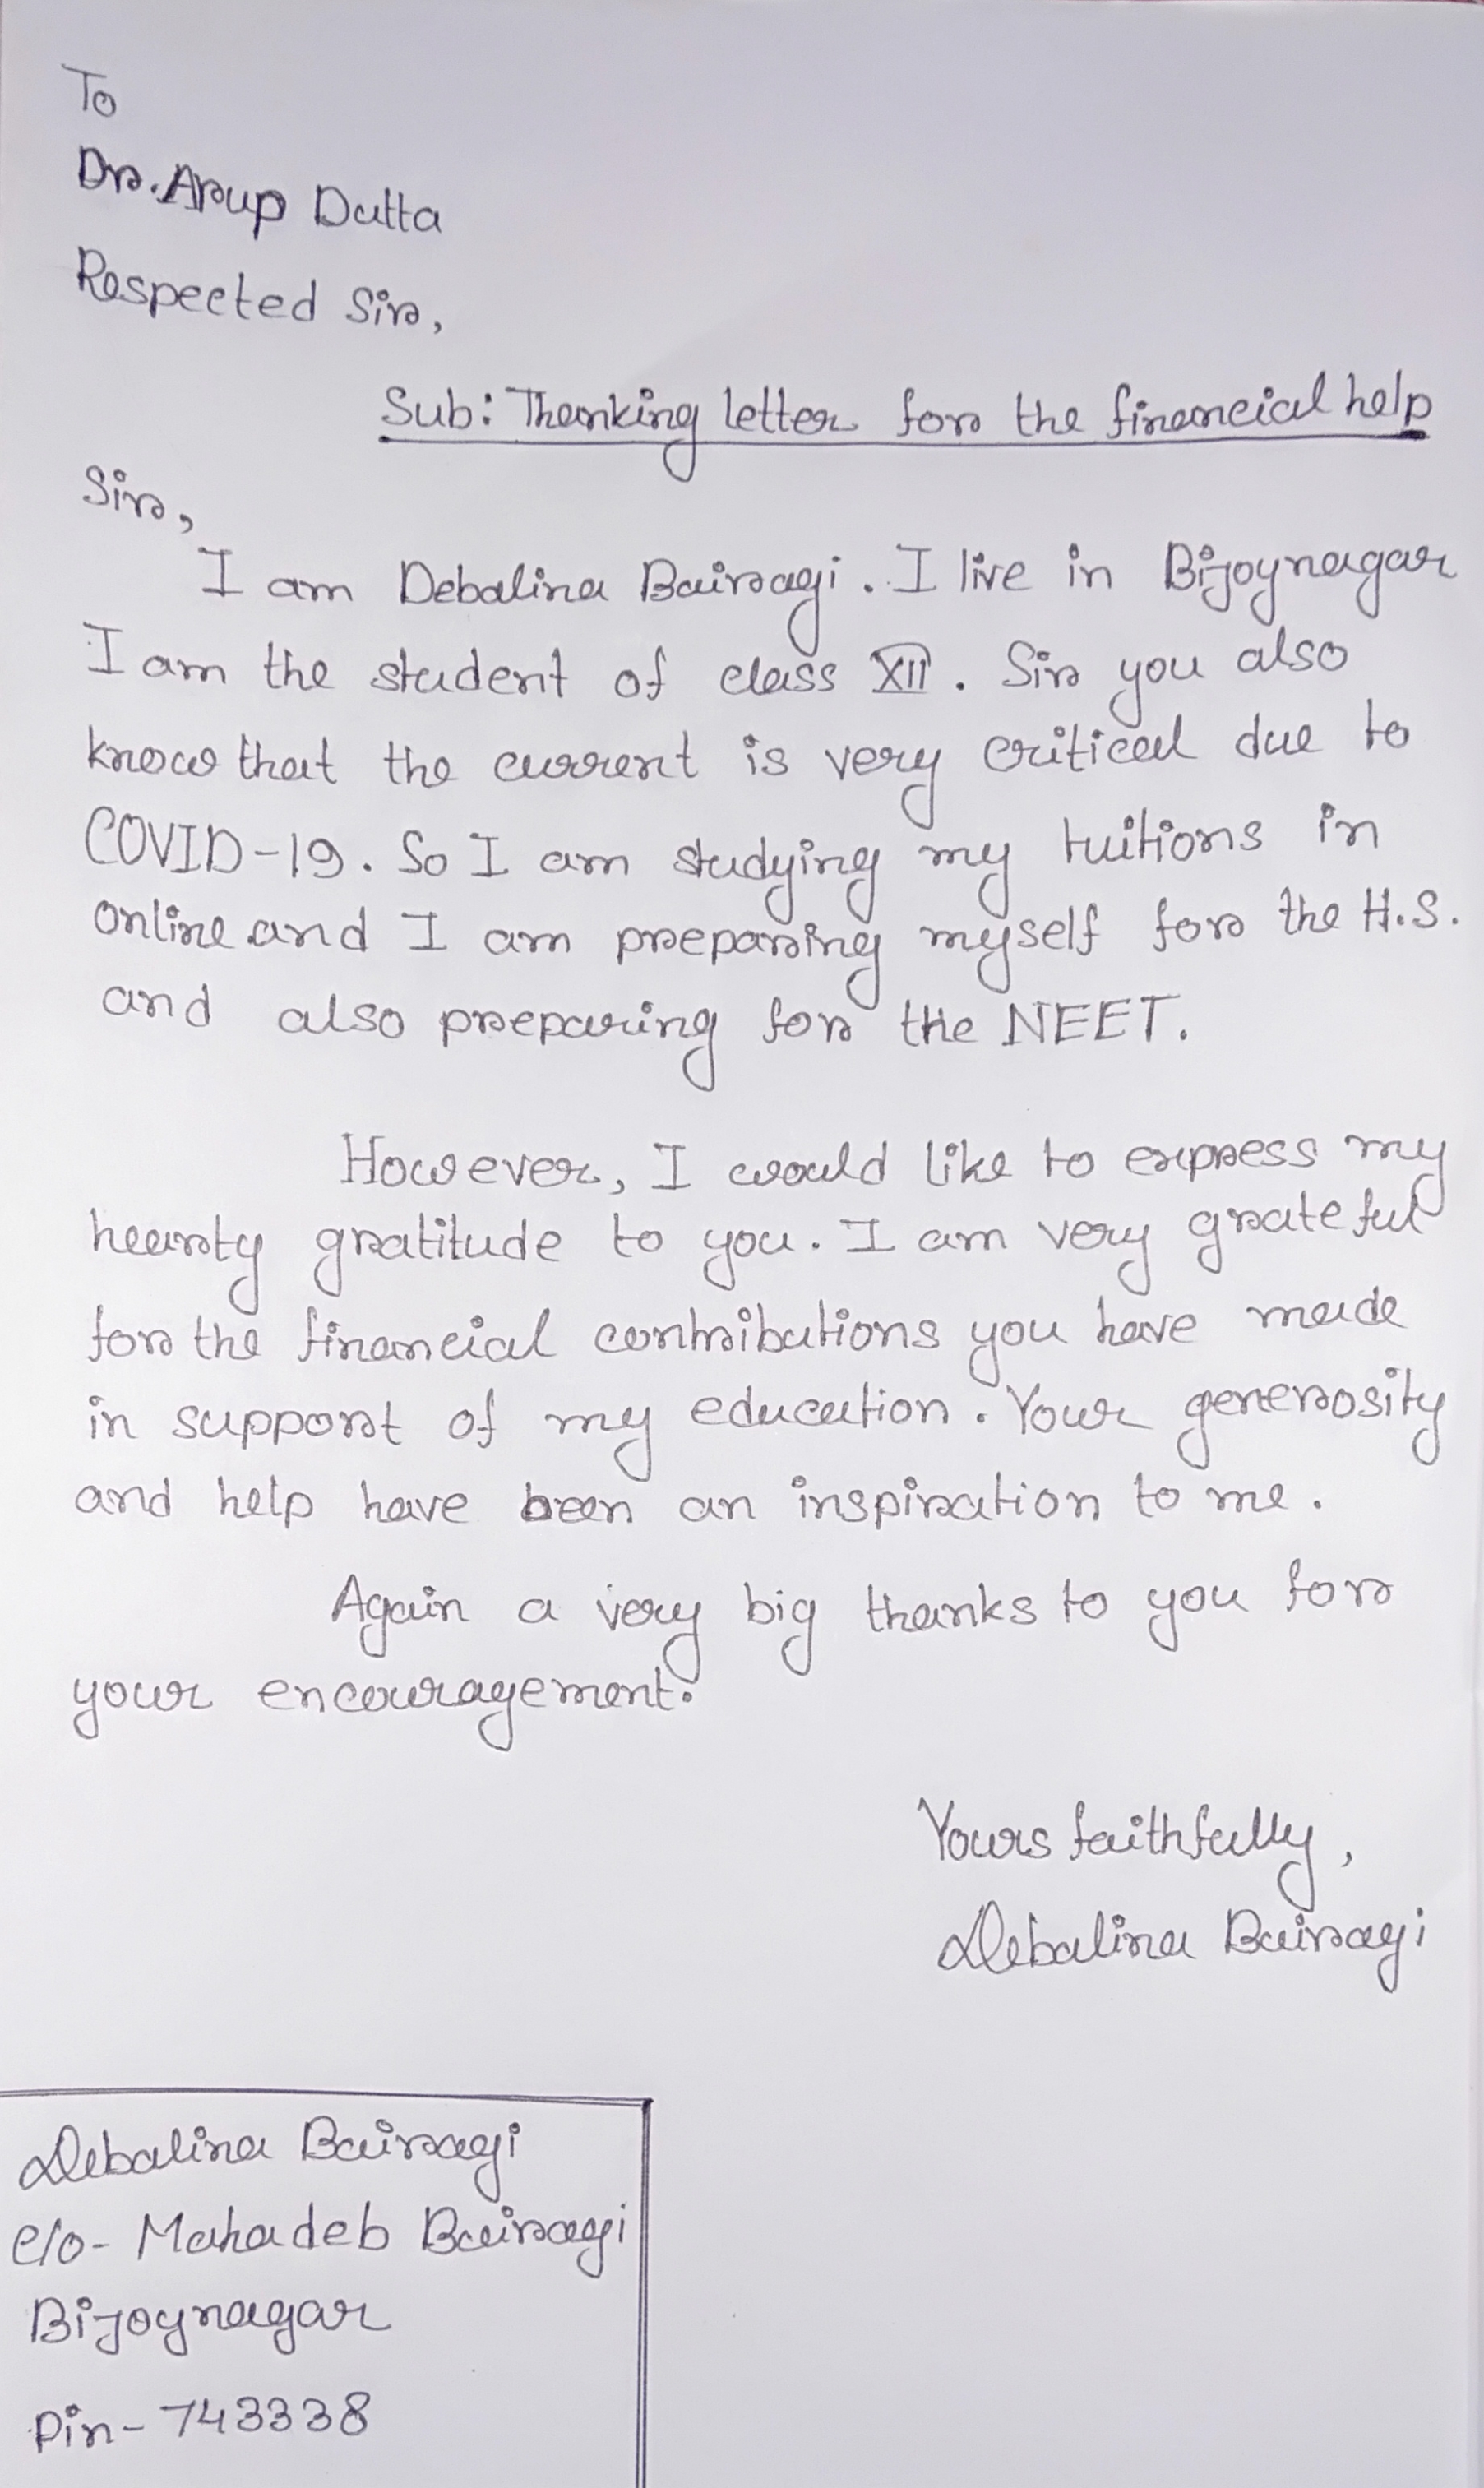 To
Dr. Arup Dutta
Respected Sir,
Sub: Thanking letter for the financial help
Sir,
I am Debalina Bairagi. I live in Bijoynagar
I am the student of class XII. Sir you also
know that the current is very critical due to
COVID-19. So I am studying my tuitions in
online and I am preparing myself for the H.S.
and also preparing for the NEET.
However, I would like to express my
hearty gratitude to you. I am very grateful
for the financial contributions you have made
in support of my education. Your generosity
and help have been an inspiration to me.
Again a very big thanks to you for
your encouragement.
Yours faithfully,
Debalina Bairagi
Debalina Bairagi
c/o- Mahadeb Bairagi
Bijoynagar
Pin- 743338